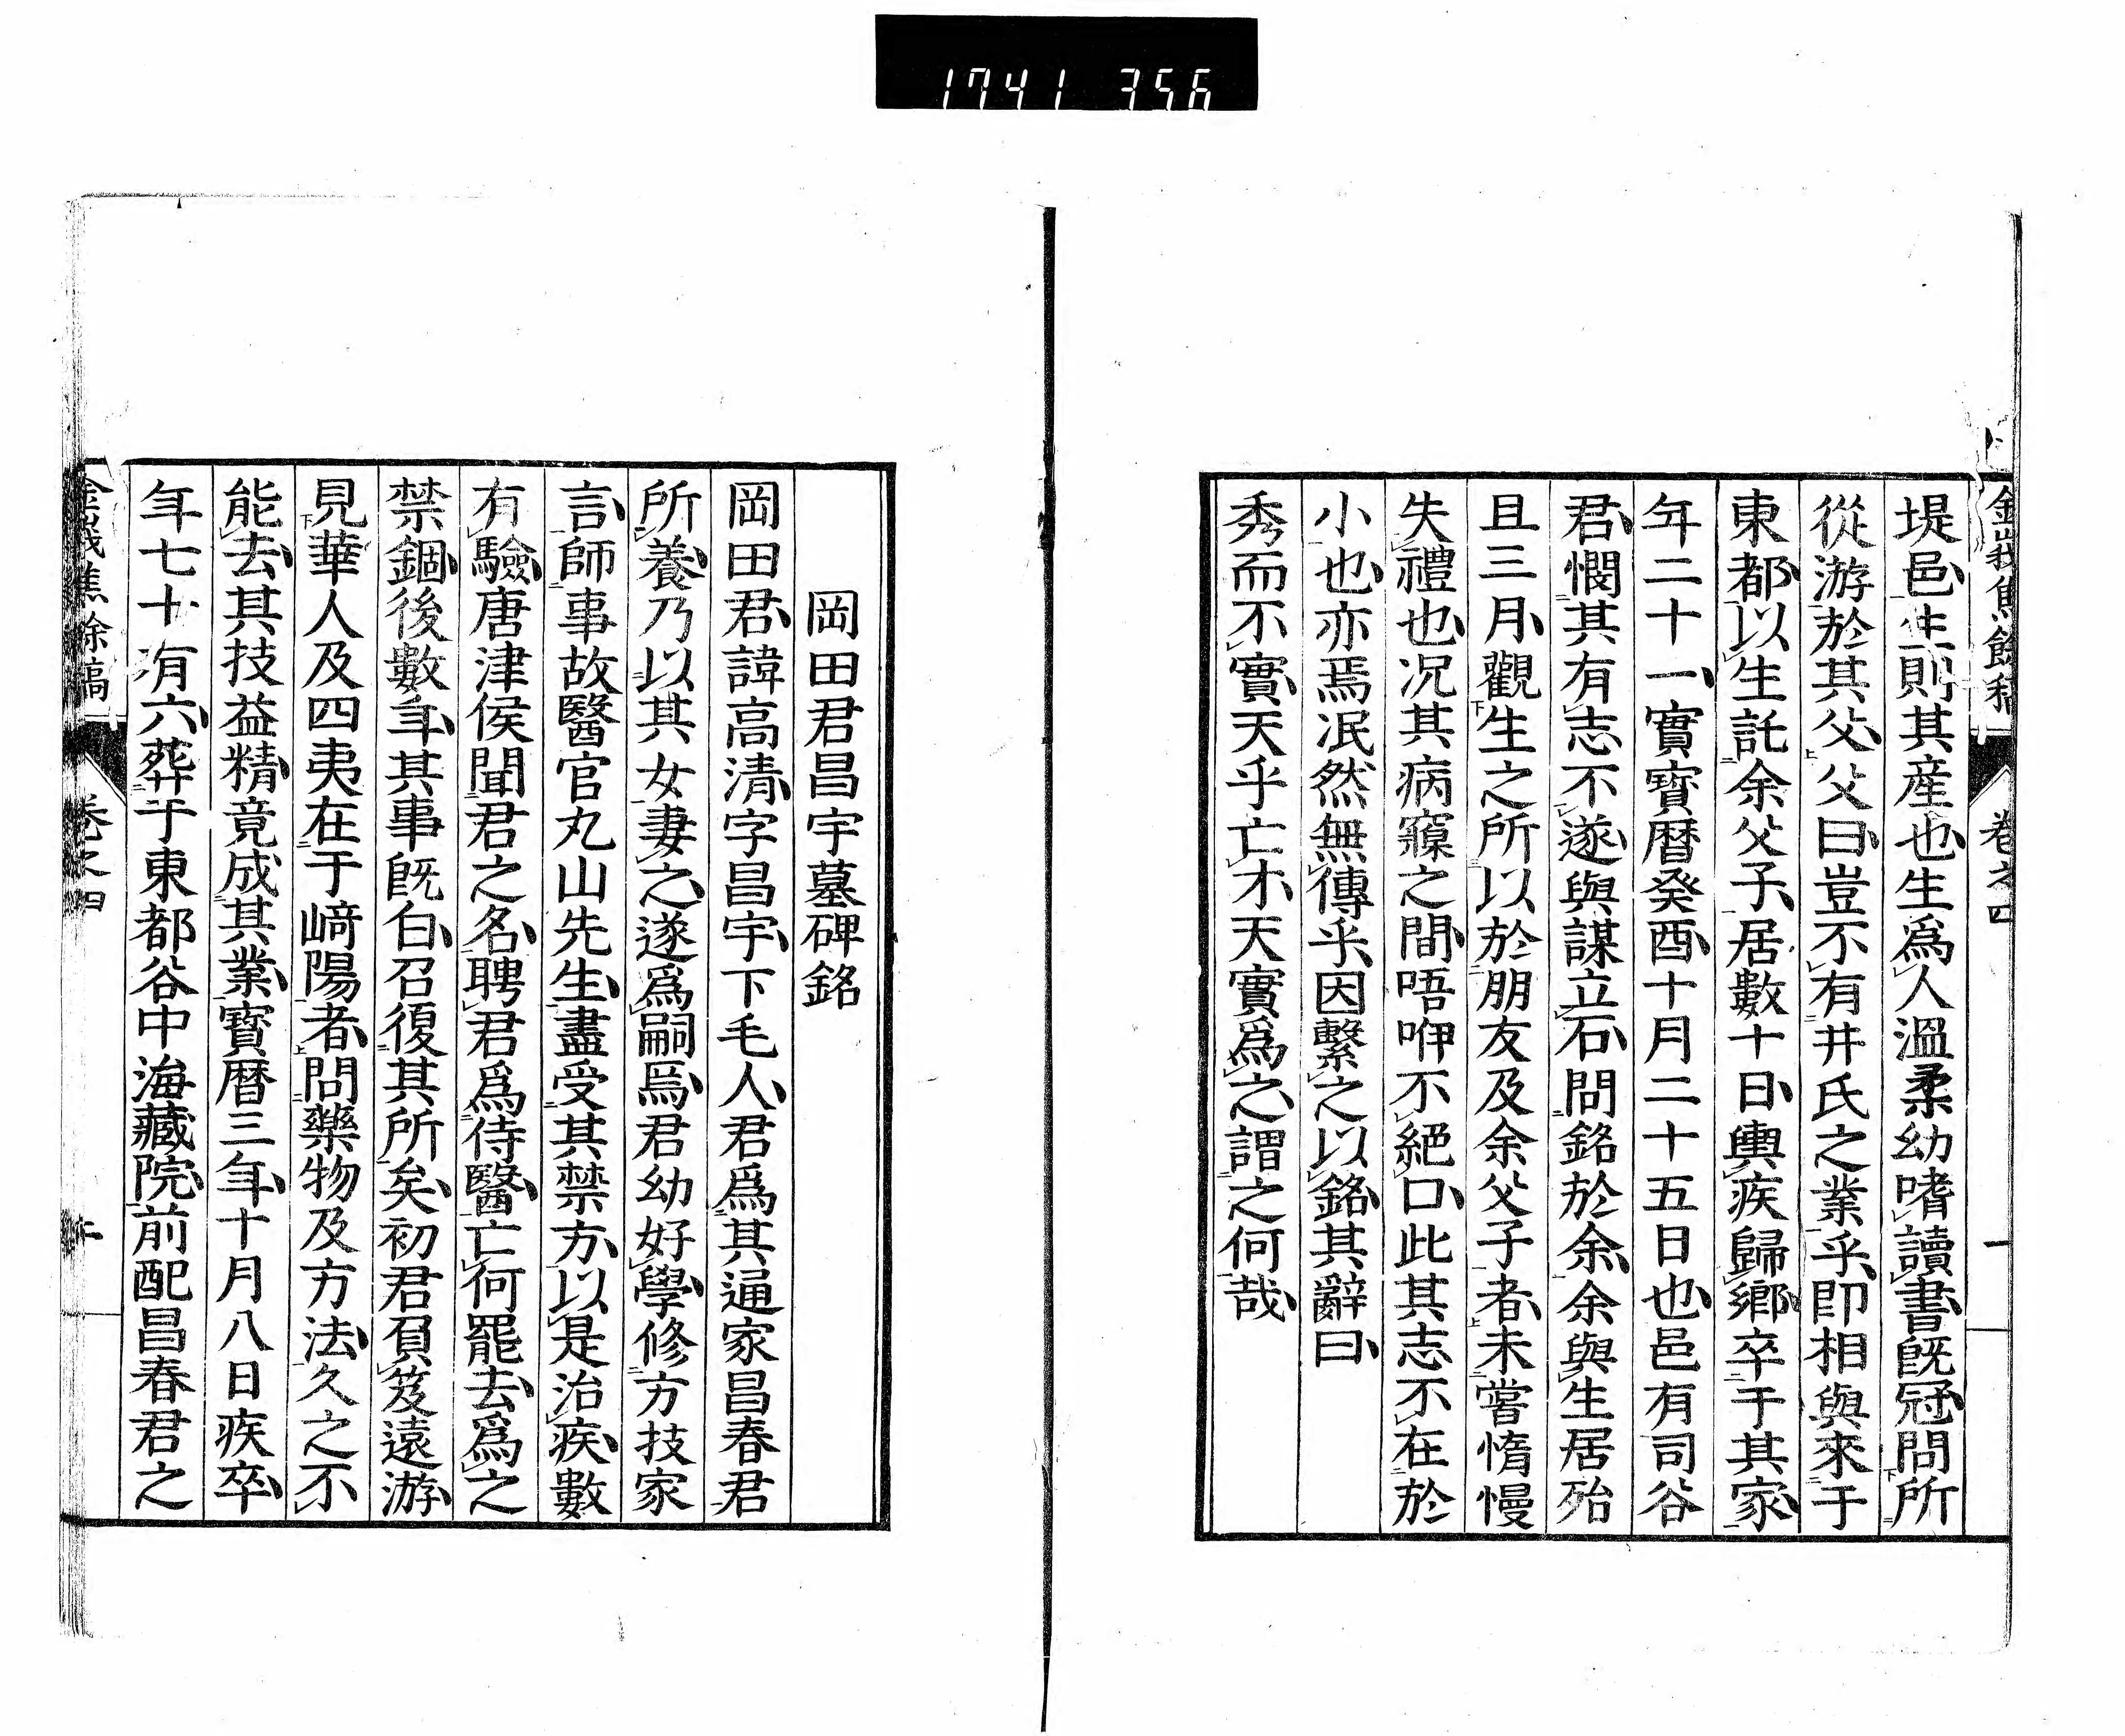 1741 356
金峩焦餘稿 卷之四 一
堤邑生則其産也生爲人溫柔幼嗜讀書旣冠問所
從游於其父父曰豈不有井氏之業乎卽相與來于
東都以生託余父子居數十日輿疾歸鄉卒于其家
年二十一實寳曆癸酉十月二十五日也邑有司谷
君憫其有志不遂與謀立石問銘於余余與生居殆
且三月觀生之所以於朋友及余父子者未嘗惰慢
失禮也况其病竆之間唔呻不絕口此其志不在於
小也亦焉泯然無傳乎因繫之以銘其辭曰
秀而不實天乎亡才天實爲之謂之何哉
岡田君昌宇墓碑銘
岡田君諱高清字昌宇下毛人君爲其逼家昌春君
所養乃以其女妻之遂爲嗣焉君幼好學修方技家
言師事故醫官丸山先生盡受其禁方以是治疾數
有驗唐津侯聞君之名聘君爲侍醫亡何罷去爲之
禁錮後數年其事旣白召復其所矣初君負笈遠游
見華人及四夷在于﨑陽者問藥物及方法久之不
能去其技益精竟成其業寳曆三年十月八日疾卒
年七十有六葬于東都谷中海藏院前配昌春君之
金峩焦餘稿 卷之四